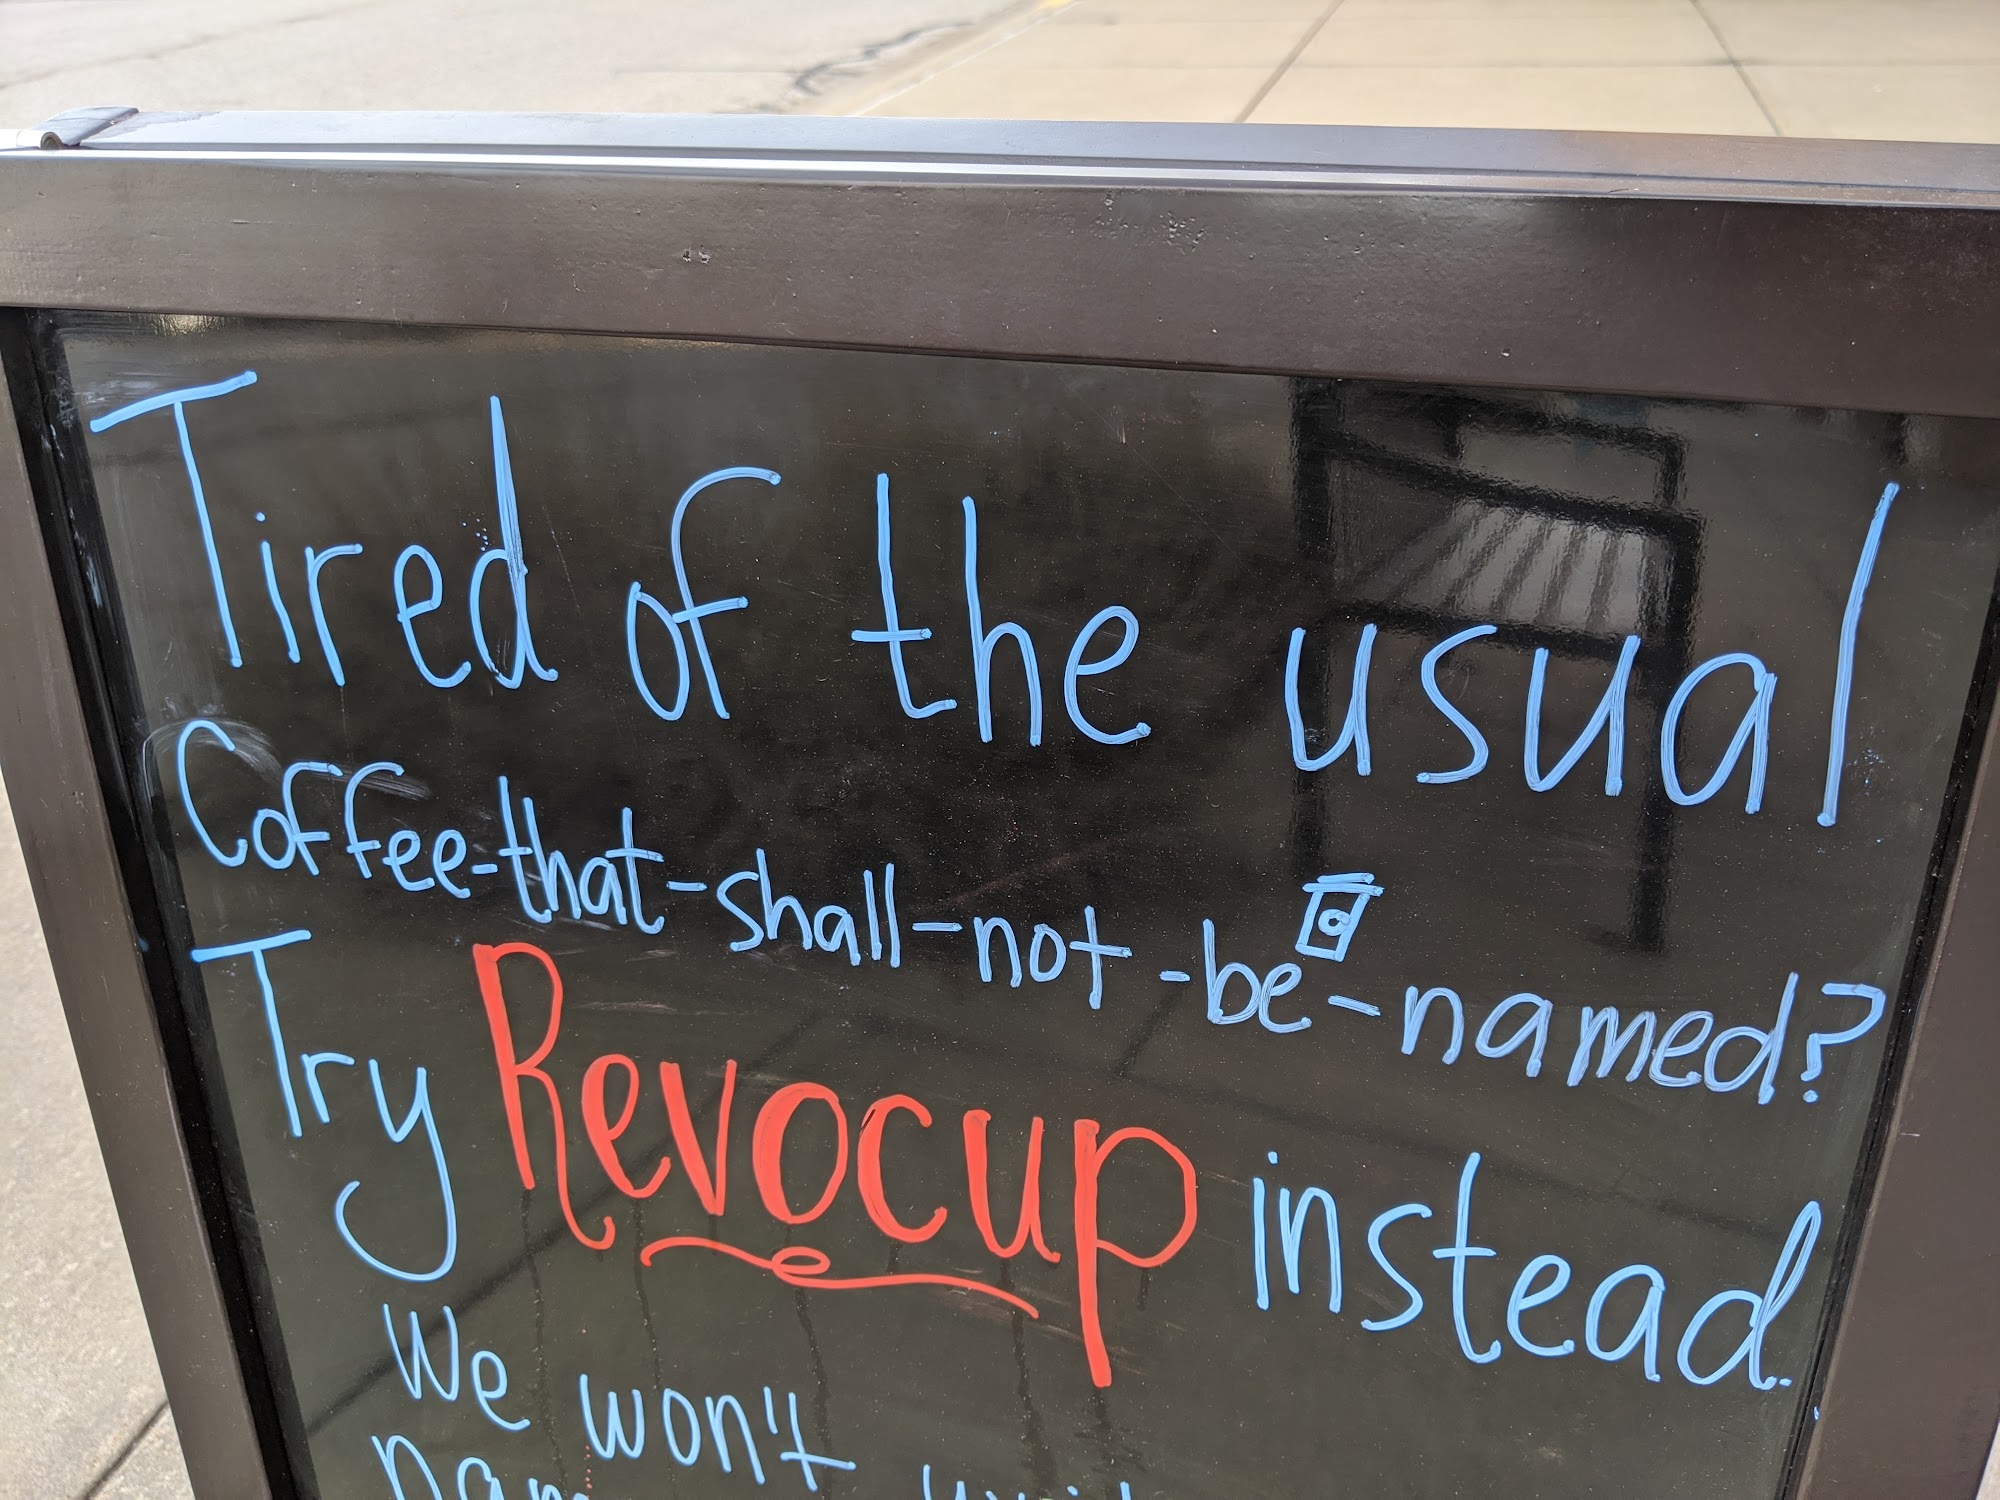 Tired of the usual
Coffee-that-shall-not-be-named?
Try Revocup instead.
We won't